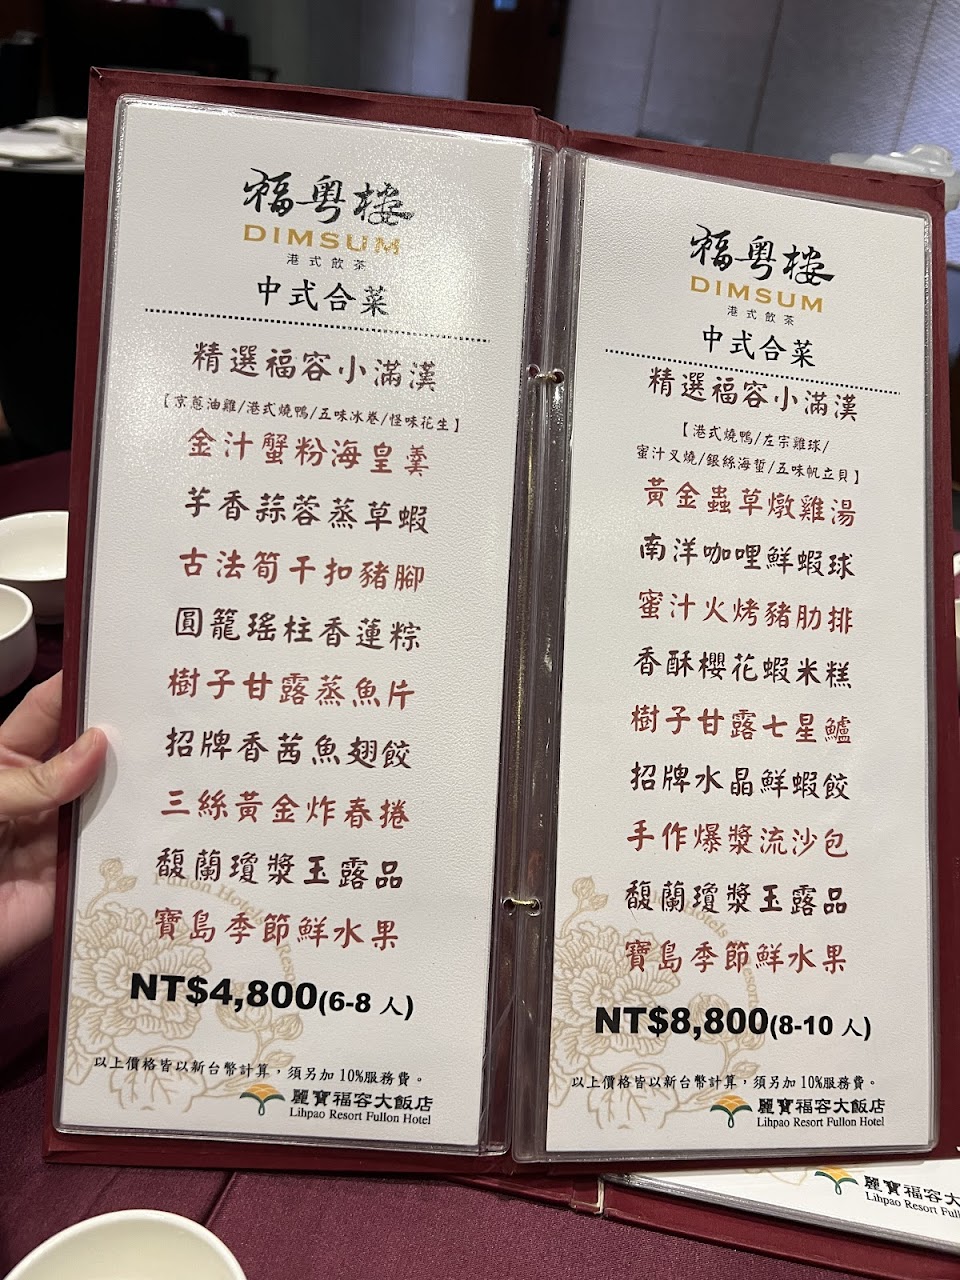 福粵樓
DIMSUM
港式飲茶
中式合菜
精選福容小滿漢
【京蔥油雞/港式燒鴨/五味冰卷/怪味花生】
金汁蟹粉海皇羹
芋香蒜蓉蒸草蝦
古法筍干扣豬腳
圓籠瑤柱香蓮粽
樹子甘露蒸魚片
招牌香茜魚翅餃
三絲黃金炸春捲
馥蘭瓊漿玉露品
寶島季節鮮水果
NT$4,800(6-8 人)
以上價格皆以新台幣計算，須另加 10%服務費。
麗寶福容大飯店
Lihpao Resort Fullon Hotel
福粵樓
DIMSUM
港式飲茶
中式合菜
精選福容小滿漢
【港式燒鴨/左宗雞球/
蜜汁叉燒/銀絲海蜇/五味帆立貝】
黃金蟲草燉雞湯
南洋咖哩鮮蝦球
蜜汁火烤豬肋排
香酥櫻花蝦米糕
樹子甘露七星鱸
招牌水晶鮮蝦餃
手作爆漿流沙包
馥蘭瓊漿玉露品
寶島季節鮮水果
NT$8,800(8-10 人)
以上價格皆以新台幣計算，須另加 10%服務費。
麗寶福容大飯店
Lihpao Resort Fullon Hotel
麗寶福容大
Lihpao Resort Full